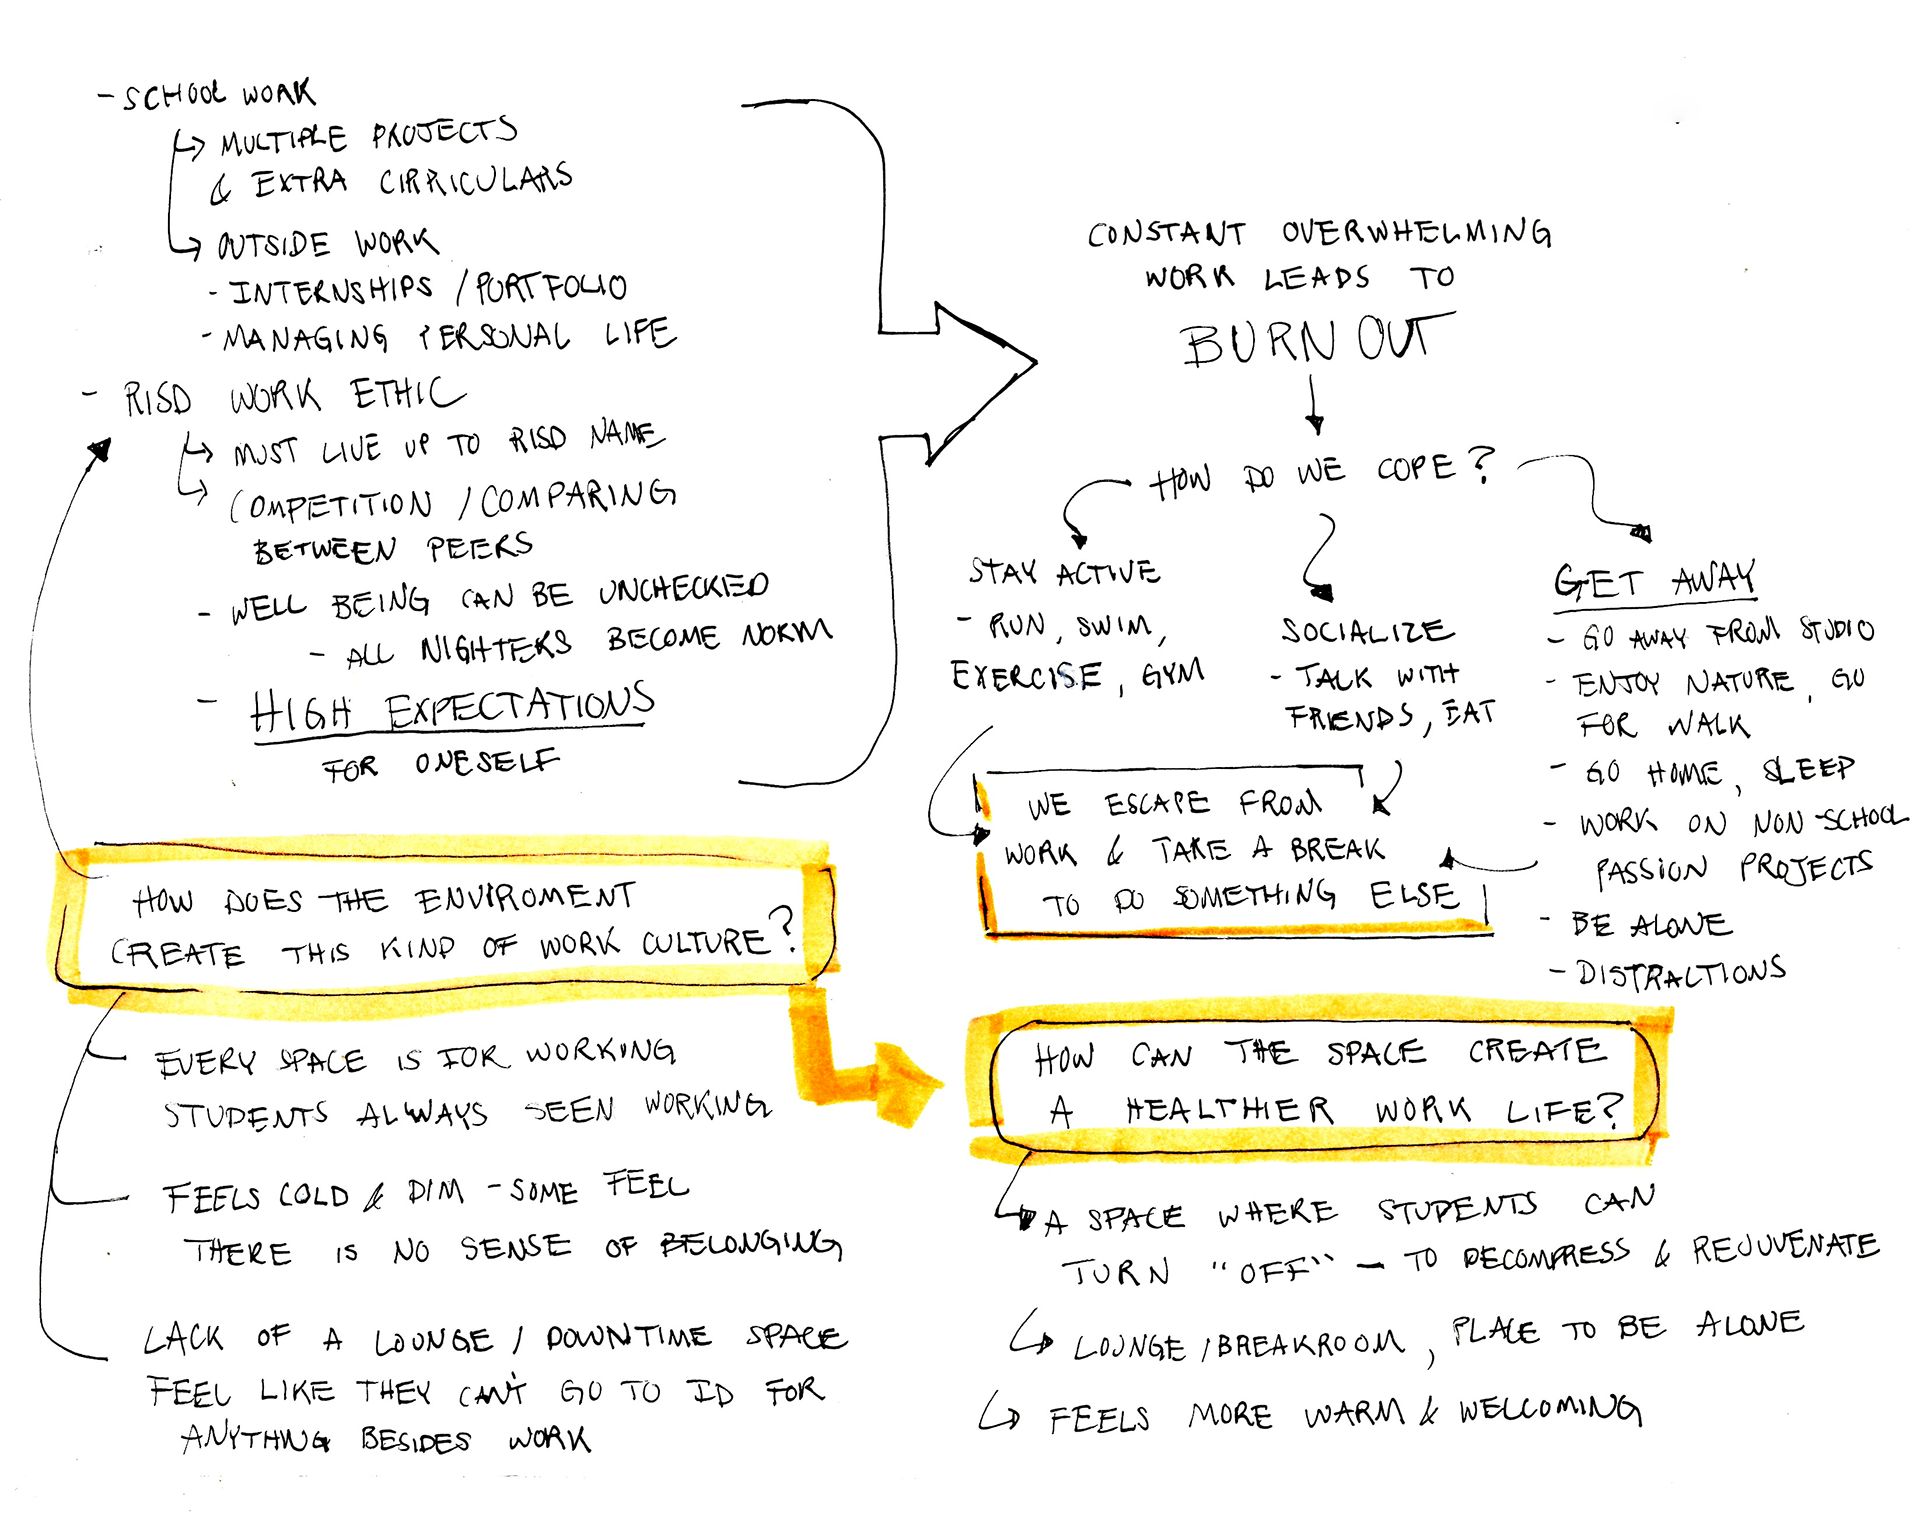 - SCHOOL WORK
↳ MULTIPLE PROJECTS
& EXTRA CIRRICULARS
↳ OUTSIDE WORK
- INTERNSHIPS / PORTFOLIO
- MANAGING PERSONAL LIFE
- RISD WORK ETHIC
↳ MUST LIVE UP TO RISD NAME
↳ COMPETITION / COMPARING
BETWEEN PEERS
- WELL BEING CAN BE UNCHECKED
- ALL NIGHTERS BECOME NORM
- HIGH EXPECTATIONS
FOR ONESELF
HOW DOES THE ENVIROMENT
CREATE THIS KIND OF WORK CULTURE?
EVERY SPACE IS FOR WORKING
STUDENTS ALWAYS SEEN WORKING
FEELS COLD & DIM - SOME FEEL
THERE IS NO SENSE OF BELONGING
LACK OF A LOUNGE / DOWNTIME SPACE
FEEL LIKE THEY CAN'T GO TO ID FOR
ANYTHING BESIDES WORK
CONSTANT OVERWHELMING
WORK LEADS TO
BURN OUT
HOW DO WE COPE?
STAY ACTIVE
- RUN, SWIM,
EXERCISE, GYM
SOCIALIZE
- TALK WITH
FRIENDS, EAT
GET AWAY
- GO AWAY FROM STUDIO
- ENJOY NATURE, GO
FOR WALK
- GO HOME, SLEEP
- WORK ON NON-SCHOOL
PASSION PROJECTS
- BE ALONE
- DISTRACTIONS
WE ESCAPE FROM
WORK & TAKE A BREAK
TO DO SOMETHING ELSE
HOW CAN THE SPACE CREATE
A HEALTHIER WORK LIFE?
↳ A SPACE WHERE STUDENTS CAN
TURN "OFF" - TO DECOMPRESS & REJUVENATE
↳ LOUNGE / BREAKROOM, PLACE TO BE ALONE
↳ FEELS MORE WARM & WELCOMING